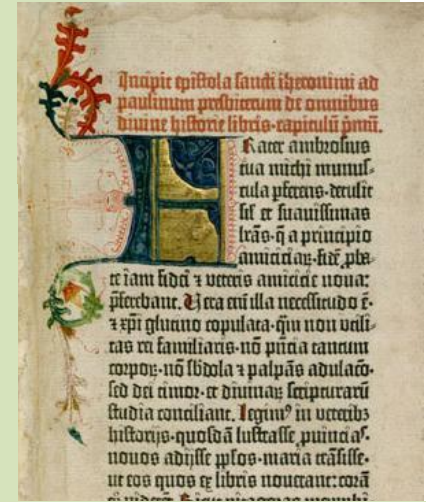 Incipit epistola sancti iheronimi ad
paulinum presbiterum de omnibus
divine historie libris·capitulũ pmũ.
Frater ambrosius
tua michi munus⸗
cula pferens·detulit
sil et suavissimas
lrãs·q̃ a principio
amiciciaꝝ·fidẽ pba⸗
te iam fidei ⁊ veteris amicicie nova:
pferebant. Vera eni illa necessitudo ẽ·
⁊ xpi glutino copulata·qm non utili⸗
tas rei familiaris·nõ pñcia tantum
corpoꝝ·nõ sbdola ⁊ palpãs adulacõ·
sed dei timor·et divinaꝝ scripturarũ
studia conciliant. Legimꝰ in veteribꝫ
historijs·quosdã lustrasse puinciaꝰ·
novos adijsse pplos·maria trãsisse·
ut eos quos ex libris noverant: corã